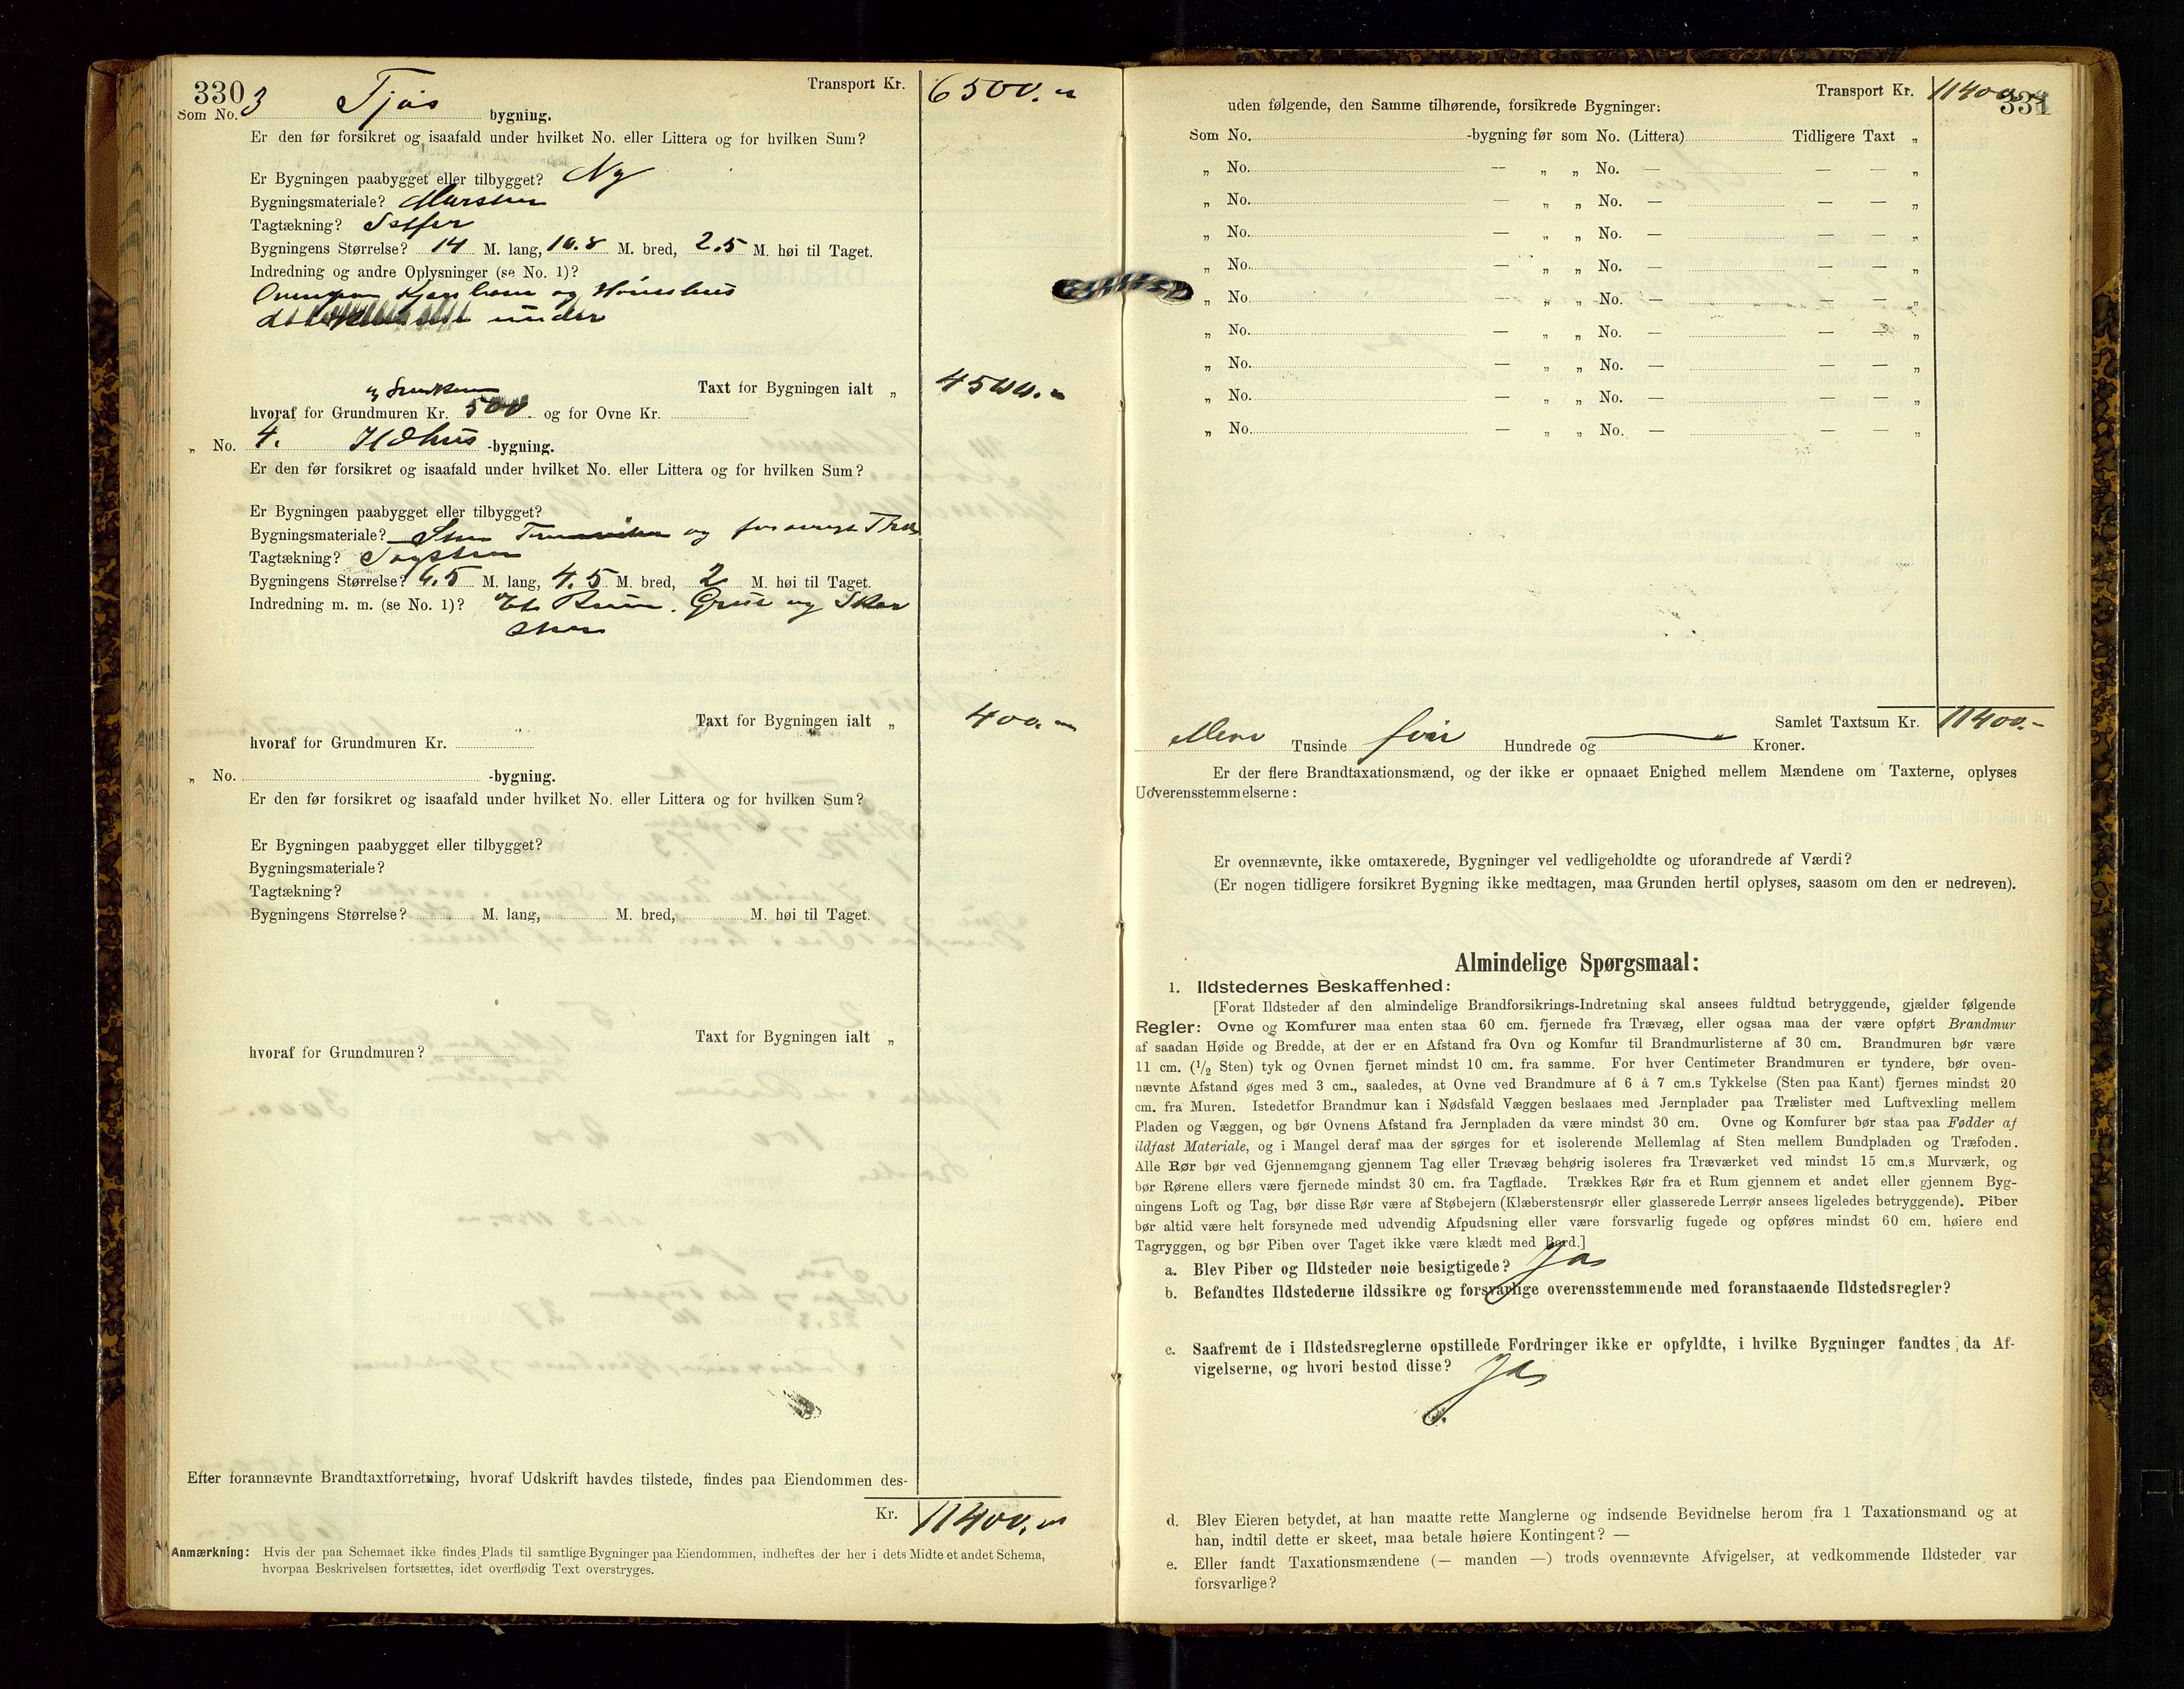 330
Transport Kr. 6500.
Som No. 3 Fjøs bygning.
Er den før forsikret og isaafald under hvilket No. eller Littera og for hvilken Sum?
Er Bygningen paabygget eller tilbygget? Ny
Bygningsmateriale? Mursten
Tagtækning? Skifer
Bygningens Størrelse? 14 M. lang, 10.8 M. bred, 2.5 M. høi til Taget.
Indredning og andre Oplysninger (se No. 1)?
og Hønsehus
under
Taxt for Bygningen ialt „ 4500.
hvoraf for Grundmuren Kr. 500 og for Ovne Kr.
„ No. 4. Ildhus -bygning.
Er den før forsikret og isaafald under hvilket No. eller Littera og for hvilken Sum?
Er Bygningen paabygget eller tilbygget?
Bygningsmateriale? Sten og forøvrigt Træ
Tagtækning? Tagsten
Bygningens Størrelse? 6.5 M. lang, 4.5 M. bred, 2 M. høi til Taget.
Indredning m. m. (se No. 1)? Et Rum. Grue og Skor
sten
Taxt for Bygningen ialt „ 400.
hvoraf for Grundmuren Kr.
„ No. -bygning.
Er den før forsikret og isaafald under hvilket No. eller Littera og for hvilken Sum?
Er Bygningen paabygget eller tilbygget?
Bygningsmateriale?
Tagtækning?
Bygningens Størrelse? M. lang, M. bred, M. høi til Taget.
Taxt for Bygningen ialt „
hvoraf for Grundmuren?
Efter forannævnte Brandtaxtforretning, hvoraf Udskrift havdes tilstede, findes paa Eiendommen des-
Kr. 11400.
Anmærkning: Hvis der paa Schemaet ikke findes Plads til samtlige Bygninger paa Eiendommen, indheftes der her i dets Midte et andet Schema,
hvorpaa Beskrivelsen fortsættes, idet overflødig Text overstryges.
Transport Kr. 11400.
331
uden følgende, den Samme tilhørende, forsikrede Bygninger:
Som No. -bygning før som No. (Littera) Tidligere Taxt „
„ No. — „ „ No. — — — „
„ No. — „ „ No. — — — „
„ No. — „ „ No. — — — „
„ No. — „ „ No. — — — „
„ No. — „ „ No. — — — „
„ No. — „ „ No. — — — „
„ No. — „ „ No. — — — „
„ No. — „ „ No. — — — „
„ No. — „ „ No. — — — „
Samlet Taxtsum Kr. 11400.-
Tusinde fire Hundrede og — Kroner.
Er der flere Brandtaxationsmænd, og der ikke er opnaaet Enighed mellem Mændene om Taxterne, oplyses
Uoverensstemmelserne:
Er ovennævnte, ikke omtaxerede, Bygninger vel vedligeholdte og uforandrede af Værdi?
(Er nogen tidligere forsikret Bygning ikke medtagen, maa Grunden hertil oplyses, saasom om den er nedreven).
Almindelige Spørgsmaal:
1. Ildstedernes Beskaffenhed:
[Forat Ildsteder af den almindelige Brandforsikrings-Indretning skal ansees fuldtud betryggende, gjælder følgende
Regler: Ovne og Komfurer maa enten staa 60 cm. fjernede fra Trævæg, eller ogsaa maa der være opført Brandmur
af saadan Høide og Bredde, at der er en Afstand fra Ovn og Komfur til Brandmurlisterne af 30 cm. Brandmuren bør være
11 cm. (½ Sten) tyk og Ovnen fjernet mindst 10 cm. fra samme. For hver Centimeter Brandmuren er tyndere, bør oven-
nævnte Afstand øges med 3 cm., saaledes, at Ovne ved Brandmure af 6 à 7 cm.s Tykkelse (Sten paa Kant) fjernes mindst 20
cm. fra Muren. Istedetfor Brandmur kan i Nødsfald Væggen beslaaes med Jernplader paa Trælister med Luftvexling mellem
Pladen og Væggen, og bør Ovnens Afstand fra Jernpladen da være mindst 30 cm. Ovne og Komfurer bør staa paa Fødder af
ildfast Materiale, og i Mangel deraf maa der sørges for et isolerende Mellemlag af Sten mellem Bundpladen og Træfoden.
Alle Rør bør ved Gjennemgang gjennem Tag eller Trævæg behørig isoleres fra Træværket ved mindst 15 cm.s Murværk, og
bør Rørene ellers være fjernede mindst 30 cm. fra Tagflade. Trækkes Rør fra et Rum gjennem et andet eller gjennem Byg-
ningens Loft og Tag, bør disse Rør være af Støbejern (Klæberstensrør eller glasserede Lerrør ansees ligeledes betryggende). Piber
bør altid være helt forsynede med udvendig Afpudsning eller være forsvarlig fugede og opføres mindst 60 cm. høiere end
Tagryggen, og bør Piben over Taget ikke være klædt med Bord.]
a. Blev Piber og Ildsteder nøie besigtigede? Ja
b. Befandtes Ildstederne ildssikre og forsvarlige overensstemmende med foranstaaende Ildstedsregler?
c. Saafremt de i Ildstedsreglerne opstillede Fordringer ikke er opfyldte, i hvilke Bygninger fandtes da Af-
vigelserne, og hvori bestod disse? Ja
d. Blev Eieren betydet, at han maatte rette Manglerne og indsende Bevidnelse herom fra 1 Taxationsmand og at
han, indtil dette er skeet, maa betale høiere Kontingent? —
e. Eller fandt Taxationsmændene (— manden —) trods ovennævnte Afvigelser, at vedkommende Ildsteder var
forsvarlige?